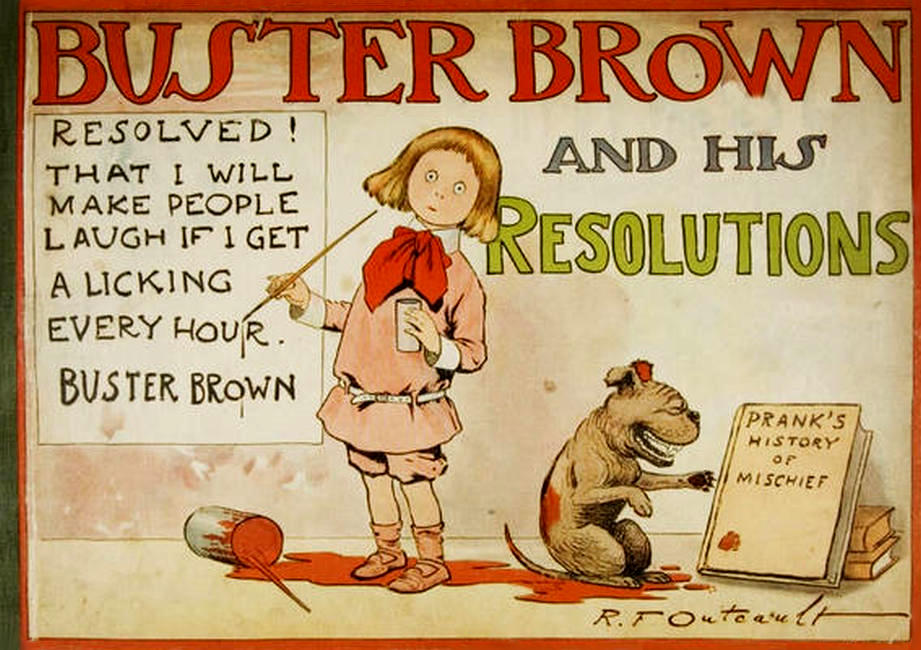 BUSTER BROWN
AND HIS
RESOLUTIONS
RESOLVED!
THAT I WILL
MAKE PEOPLE
LAUGH IF I GET
A LICKING
EVERY HOUR.
BUSTER BROWN
PRANK'S
HISTORY
OF
MISCHIEF
R. F Outcault